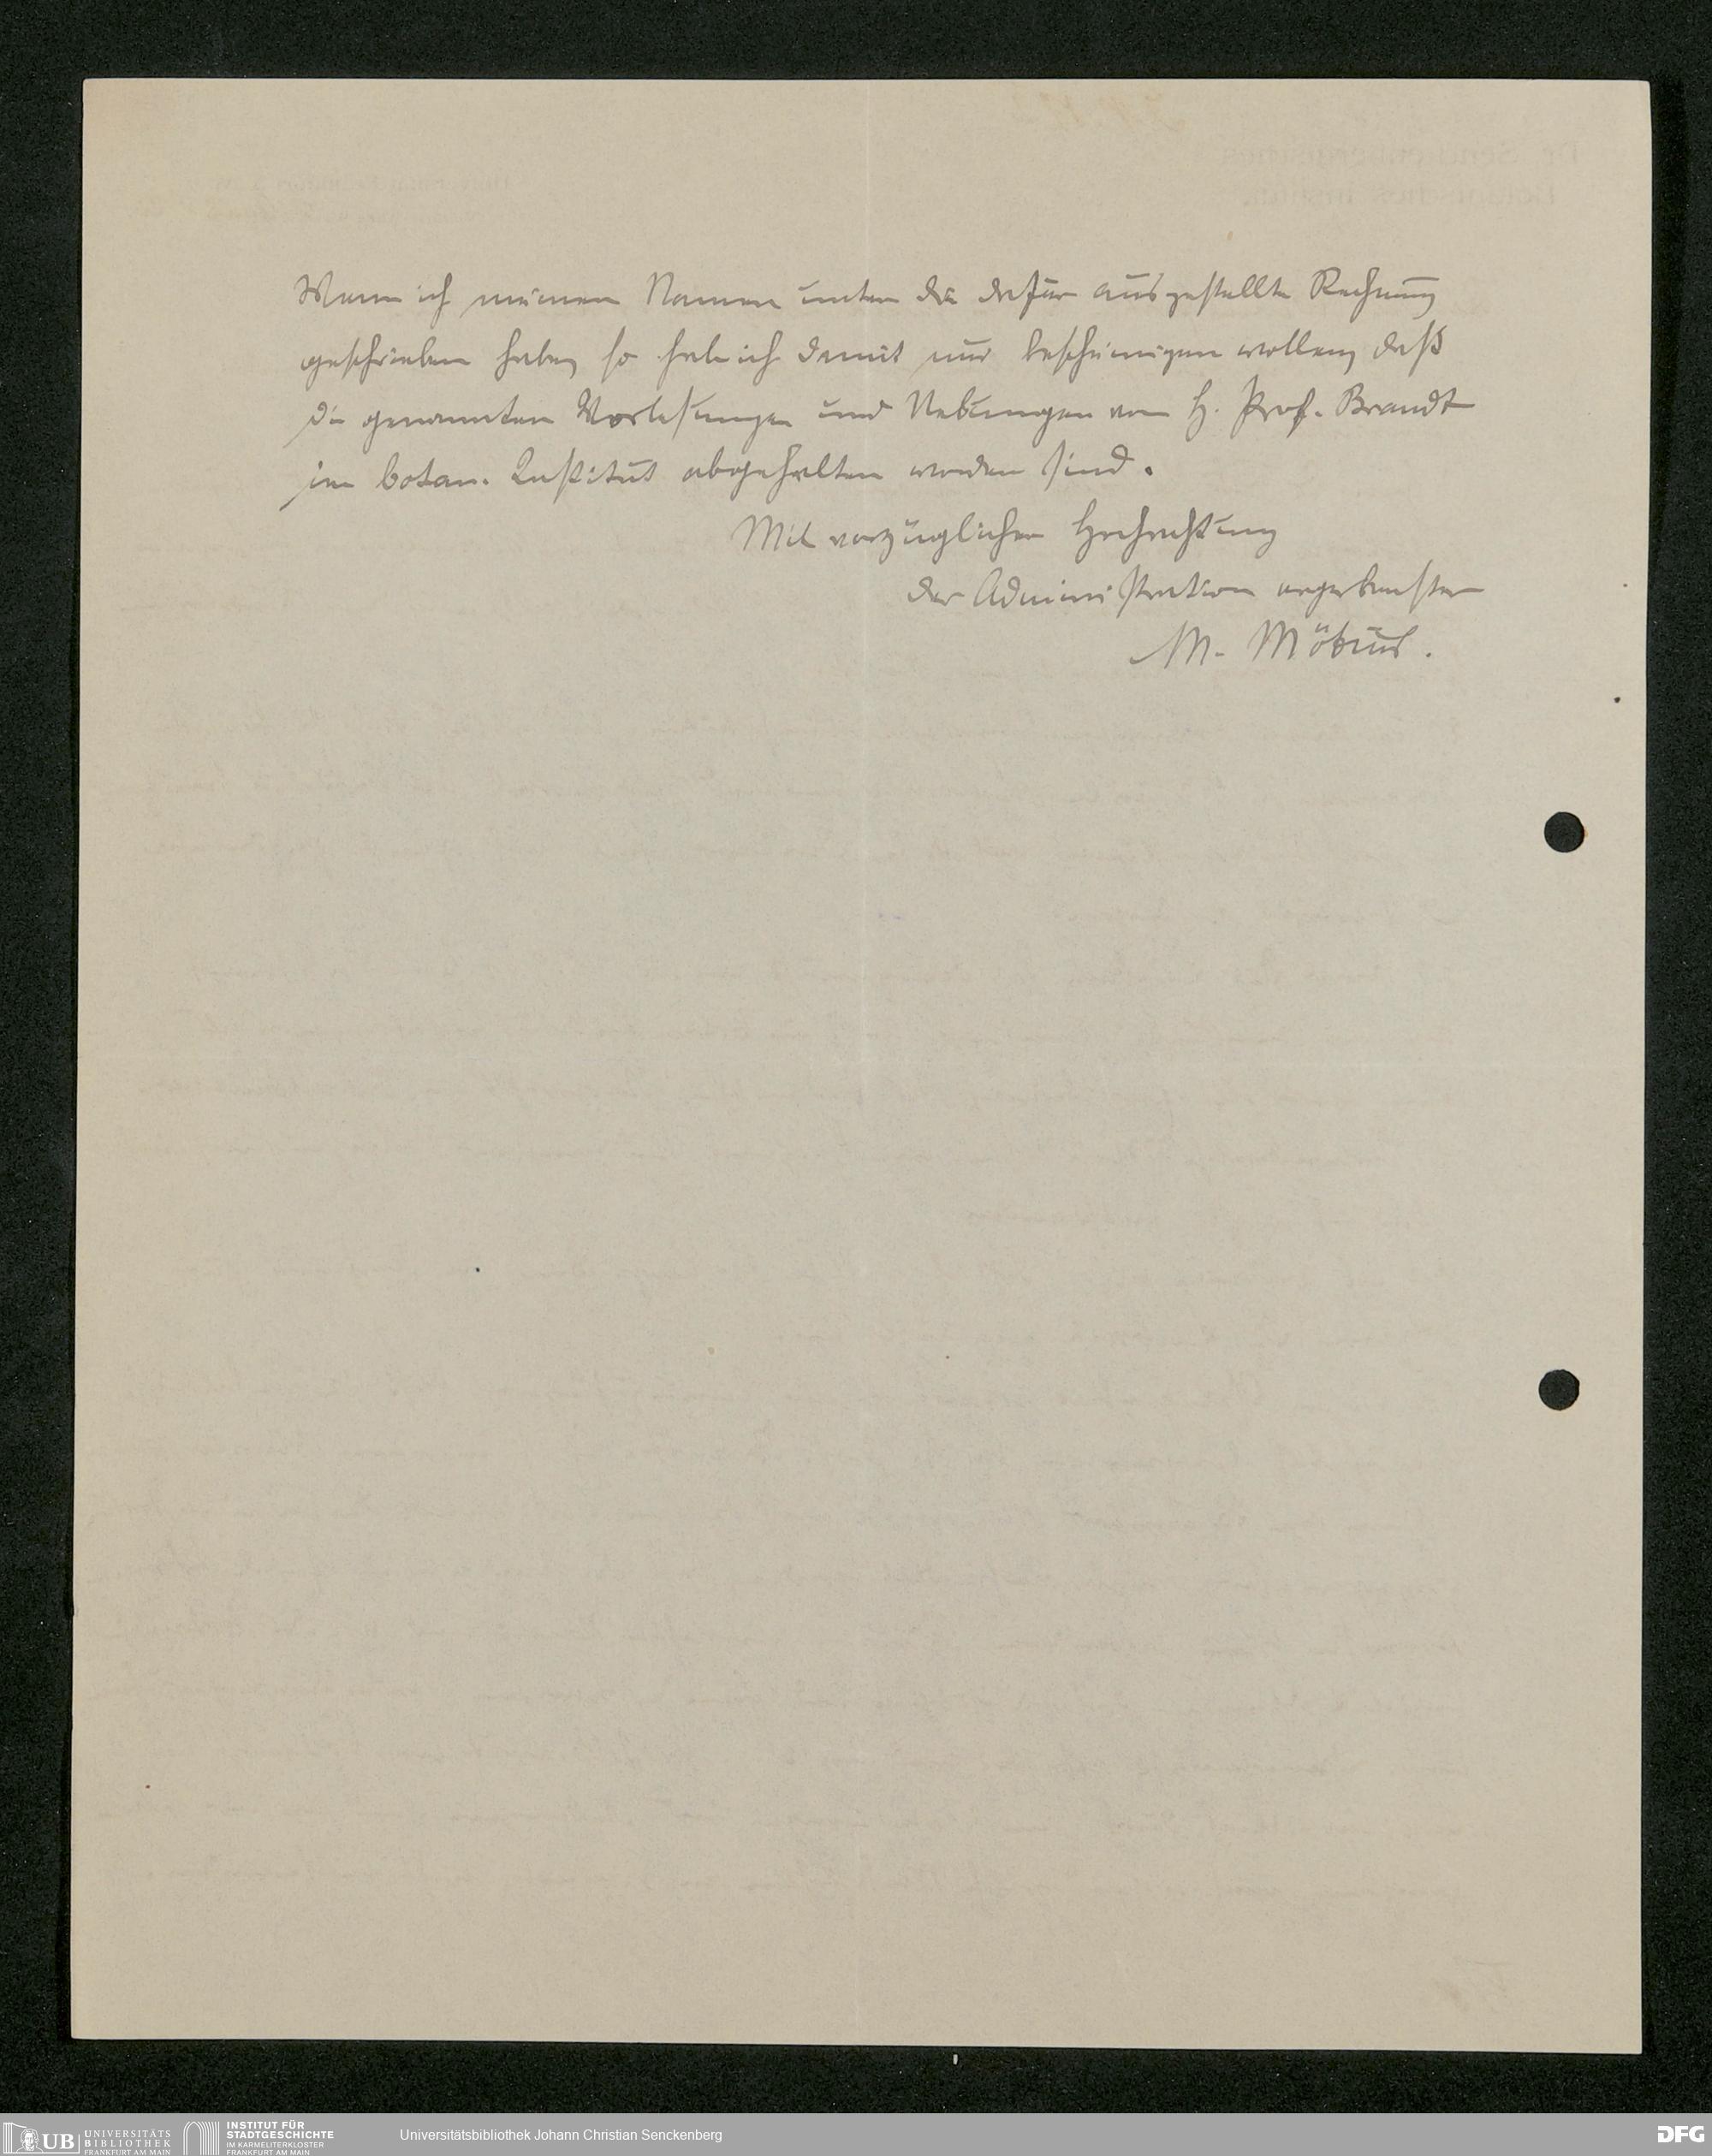 Wenn ich meinen Namen unter die dafür ausgestellte Rechnung
geschrieben habe, so habe ich damit nur bescheinigen wollen, daß
die genannten Vorlesungen und Uebungen von H. Prof. Brandt
im botan. Institut abgehalten worden sind.
Mit vorzüglicher Hochachtung
der Administration ergebenster
M. Möbius.
UB UNIVERSITÄTS
BIBLIOTHEK
FRANKFURT AM MAIN
INSTITUT FÜR
STADTGESCHICHTE
IM KARMELITERKLOSTER
FRANKFURT AM MAIN
Universitätsbibliothek Johann Christian Senckenberg
DFG